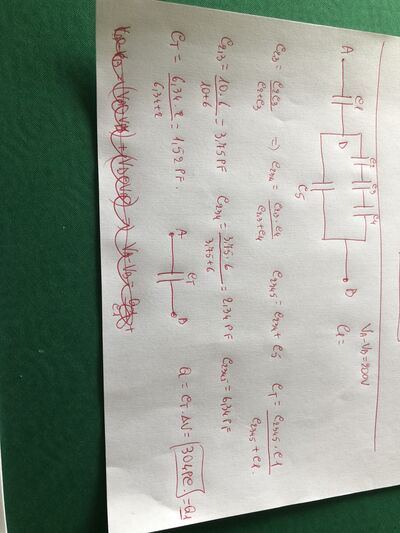 A C1 D C2 C3 C4 B
C5
VA-VB=200V
C1=
C23 = C2·C3 / C2+C3 ⇒ C234 = C23·C4 / C23+C4 C2345 = C234 + C5 CT = C2345·C1 / C2345+C1
C2,3 = 10·6 / 10+6 = 3,75 PF C234 = 3,75·6 / 3,75+6 = 2,34 PF C2345 = 6,34 PF
CT = 6,34·2 / 6,34+2 = 1,52 PF. A CT B Q = CT·ΔV = 304PC = Q1